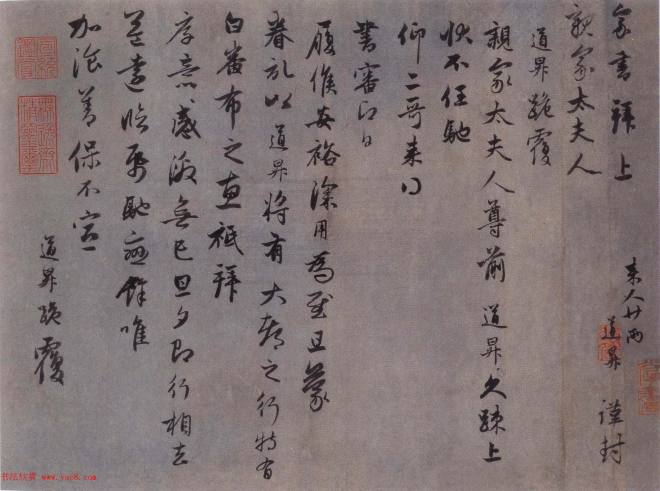 来人廿兩
道昇 謹封
家書拜上
親家太夫人
道昇跪覆
親家太夫人尊前 道昇久疎上
狀不任馳
仰二哥来得
書審即日
履候安裕深用為慰且蒙
眷記以道昇將有大都之行特有
白番布之惠祗拜
厚意感激無已旦夕即行相去
益遠臨紙馳戀餘唯
加湌善保不宣
道昇跪覆
书法欣赏 www.yac8.com